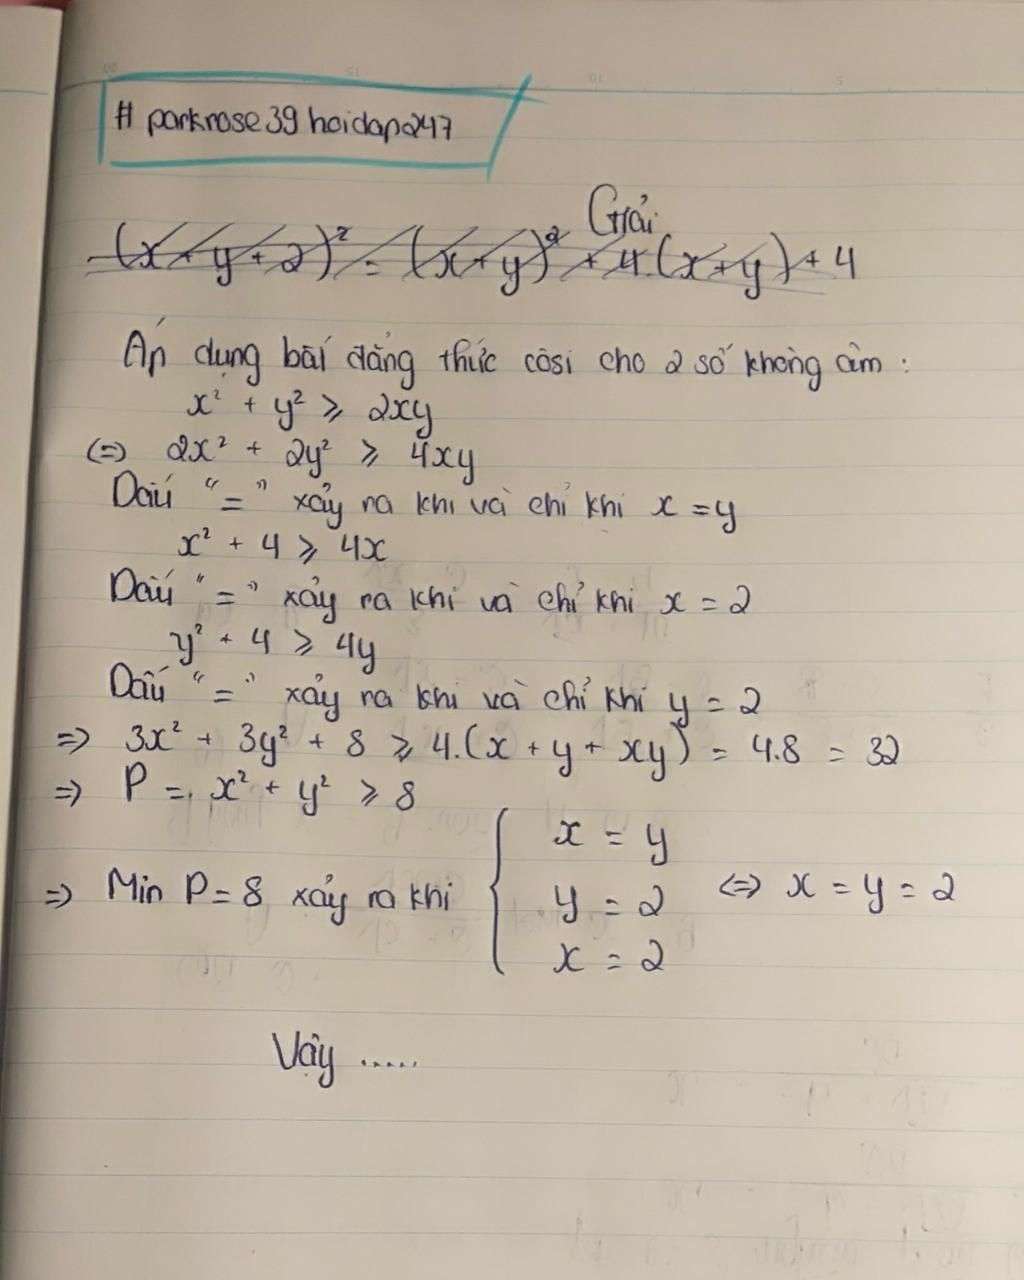 # parkrose39 hoidap247
Giải
(x + y + 2)² = (x + y)² + 4.(x + y) + 4
Áp dụng bất đẳng thức côsi cho 2 số không âm :
x² + y² ⩾ 2xy
(=) 2x² + 2y² ⩾ 4xy
Dấu "=" xảy ra khi và chỉ khi x = y
x² + 4 ⩾ 4x
Dấu "=" xảy ra khi và chỉ khi x = 2
y² + 4 ⩾ 4y
Dấu "=" xảy ra khi và chỉ khi y = 2
=> 3x² + 3y² + 8 ⩾ 4.(x + y + xy) = 4.8 = 32
=> P = x² + y² ⩾ 8
x = y
=> Min P = 8 xảy ra khi { y = 2 <=> x = y = 2
x = 2
Vậy .....